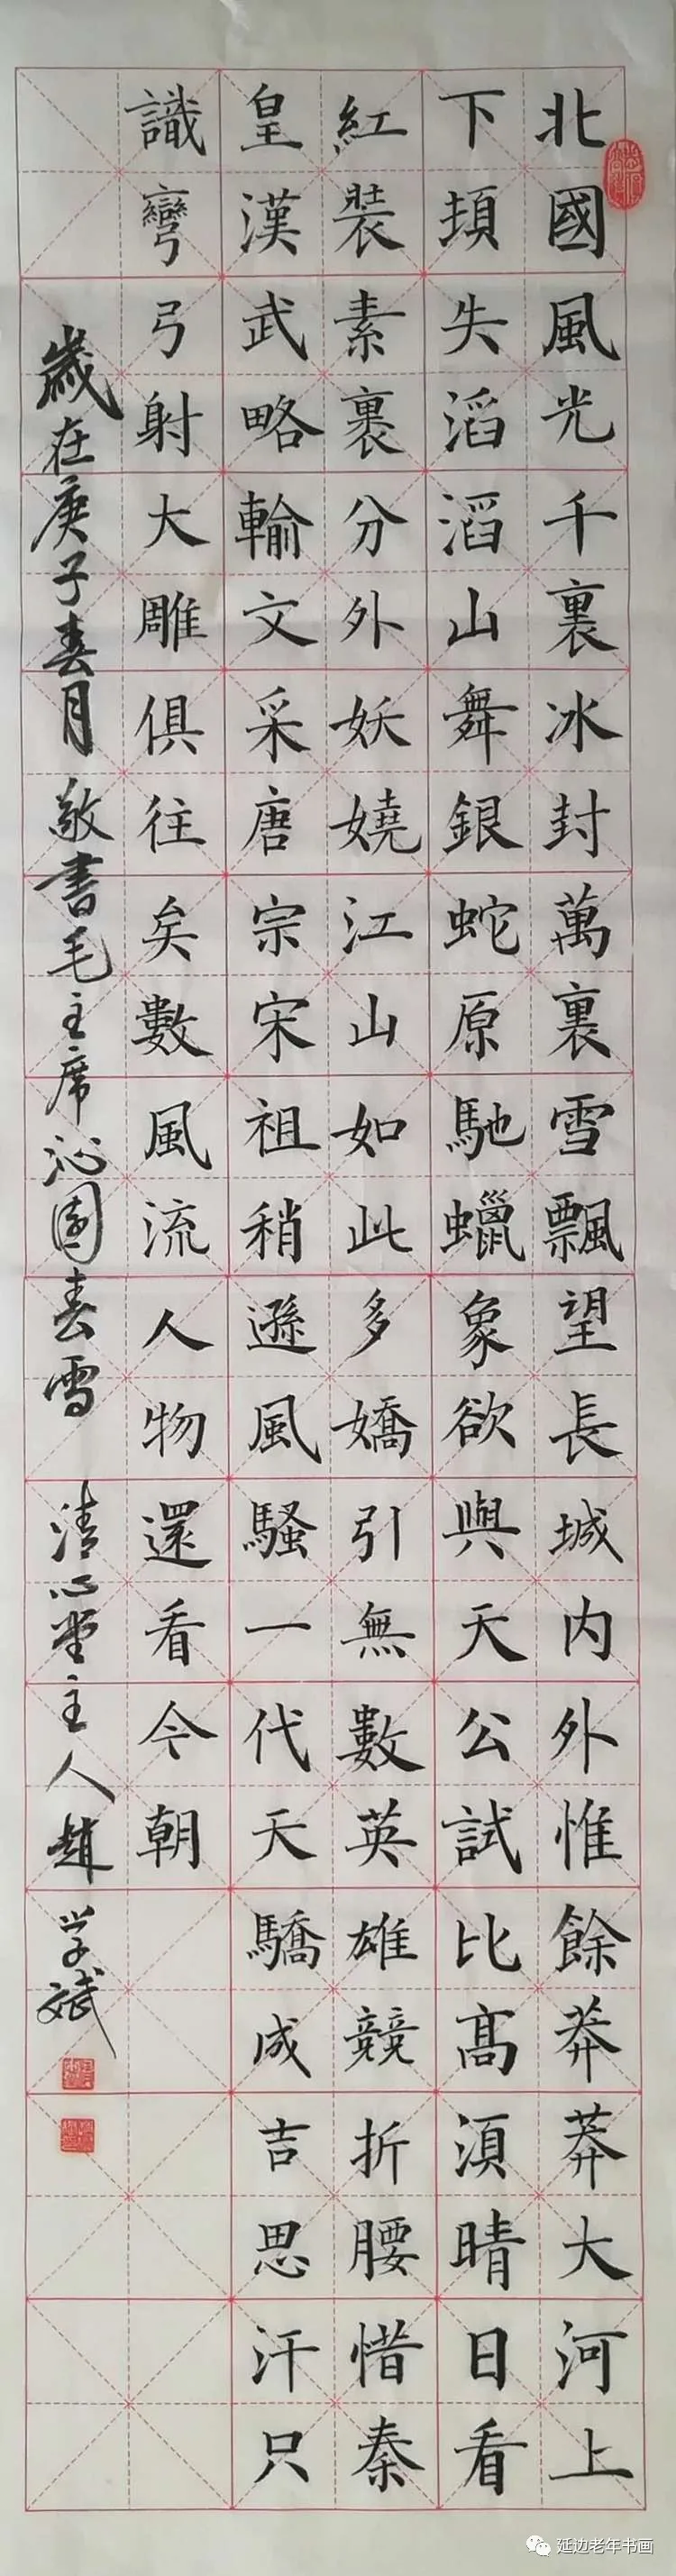 北國風光千裏冰封萬裏雪飄望長城内外惟餘莽莽大河上
下頓失滔滔山舞銀蛇原馳蠟象欲與天公試比髙湏晴日看
紅裝素裹分外妖嬈江山如此多嬌引無數英雄競折腰惜秦
皇漢武略輸文采唐宗宋祖稍遜風騷一代天驕成吉思汗只
識彎弓射大雕俱往矣數風流人物還看今朝
歲在庚子春月敬書毛主席沁園春雪 清心堂主人趙学斌
延边老年书画